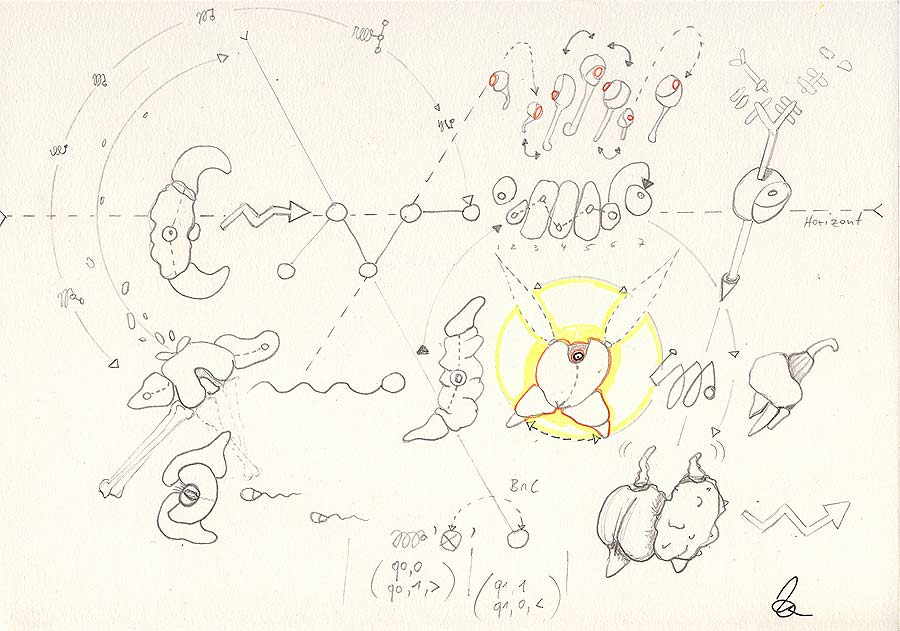 Horizont
1 2 3 4 5 6 7
B∩C
(q0,0
q0,1,>)
(q1,1
q1,0,<)